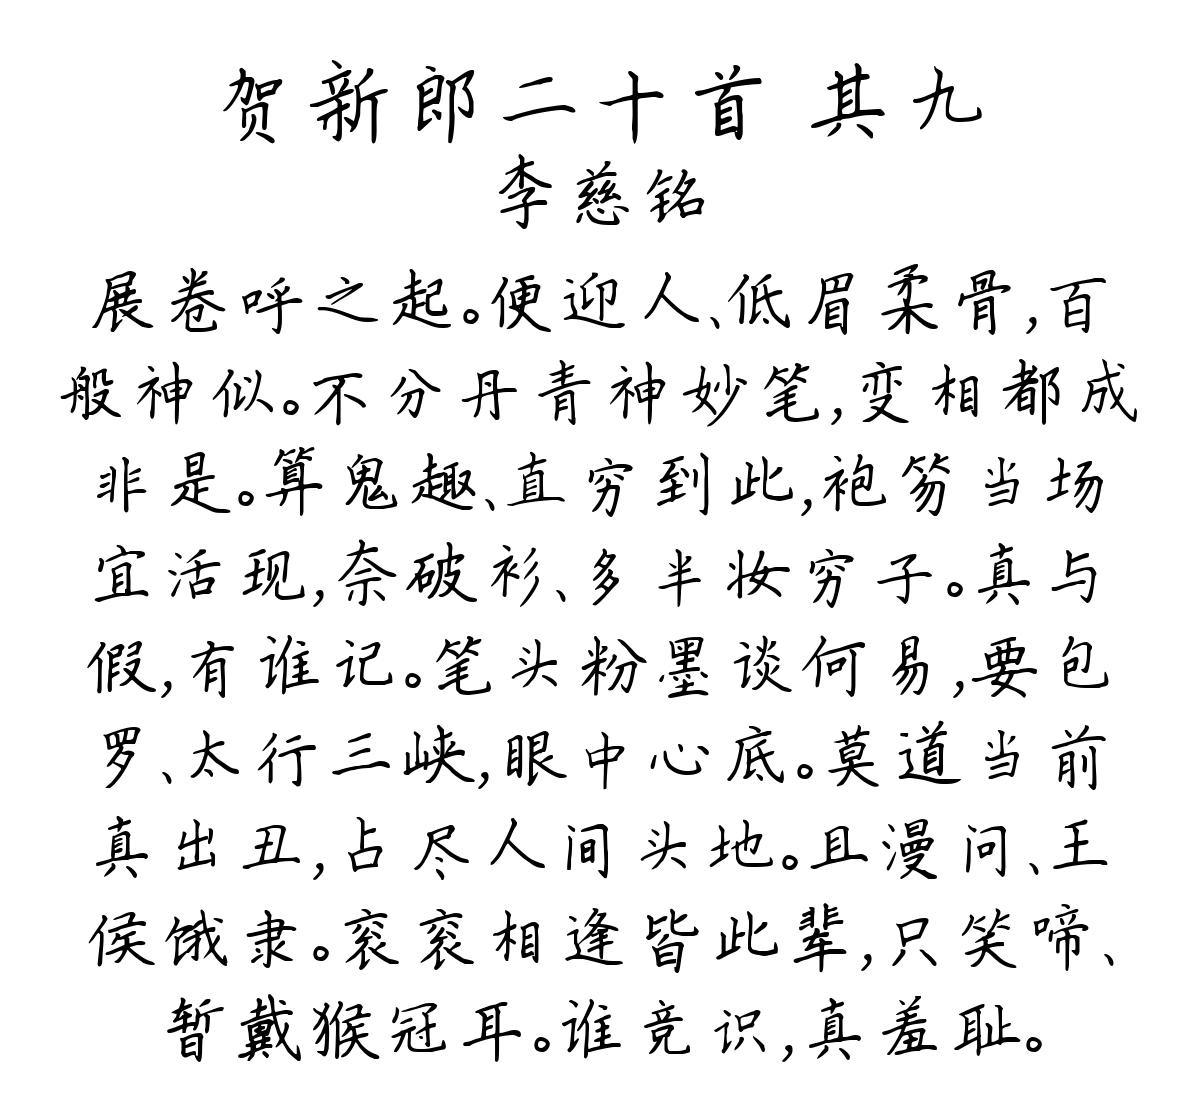 贺新郎二十首 其九
李慈铭
展卷呼之起。便迎人、低眉柔骨,百
般神似。不分丹青神妙笔,变相都成
非是。算鬼趣、直穷到此,袍笏当场
宜活现,奈破衫、多半妆穷子。真与
假,有谁记。笔头粉墨谈何易,要包
罗、太行三峡,眼中心底。莫道当前
真出丑,占尽人间头地。且漫问、王
侯饿隶。衮衮相逢皆此辈,只笑啼、
暂戴猴冠耳。谁竞识,真羞耻。